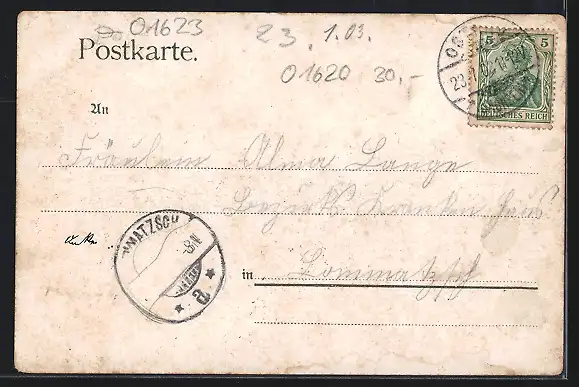 01623
23.1.03.
Postkarte.
01620 30,-
5 5
DEUTSCHES REICH
An
Fräulein Alma Lange
Bezirks Kranken Haus
in Lommatzsch
8-N
* a *